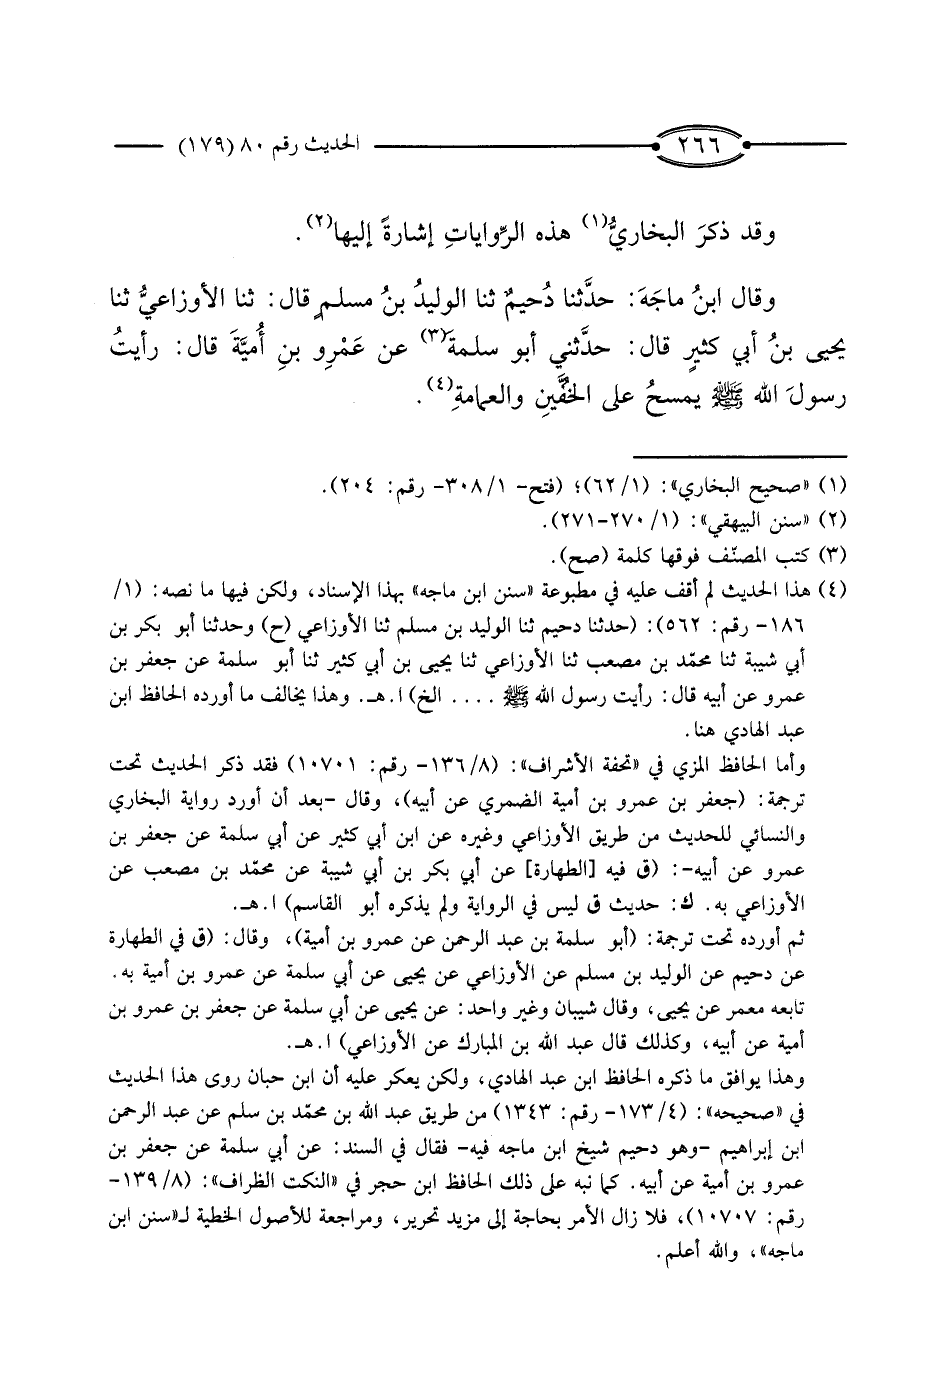 ٢٦٦ الحديث رقم ٨٠ (١٧٩)
وقد ذكرَ البخاريُّ(١) هذه الرِّواياتِ إشارةً إليها(٢).
وقال ابنُ ماجَهَ: حدَّثنا دُحيمٌ ثنا الوليدُ بنُ مسلمٍ قال: ثنا الأوزاعيُّ ثنا
يحيى بنُ أبي كثيرٍ قال: حدَّثني أبو سلمةَ(٣) عن عَمْرِو بنِ أُميَّةَ قال: رأيتُ
رسولَ الله ﷺ يمسحُ على الخفَّينِ والعمامةِ(٤).
(١) «صحيح البخاري»: (١/ ٦٢)؛ (فتح- ١/ ٣٠٨- رقم: ٢٠٤).
(٢) «سنن البيهقي»: (١/ ٢٧٠-٢٧١).
(٣) كتب المصنّف فوقها كلمة (صح).
(٤) هذا الحديث لم أقف عليه في مطبوعة «سنن ابن ماجه» بهذا الإسناد، ولكن فيها ما نصه: (١/
١٨٦- رقم: ٥٦٢): (حدثنا دحيم ثنا الوليد بن مسلم ثنا الأوزاعي (ح) وحدثنا أبو بكر بن
أبي شيبة ثنا محمّد بن مصعب ثنا الأوزاعي ثنا يحيى بن أبي كثير ثنا أبو سلمة عن جعفر بن
عمرو عن أبيه قال: رأيت رسول الله ﷺ .... الخ) ا.هـ. وهذا يخالف ما أورده الحافظ ابن
عبد الهادي هنا.
وأما الحافظ المزي في «تحفة الأشراف»: (٨/ ١٣٦- رقم: ١٠٧٠١) فقد ذكر الحديث تحت
ترجمة: (جعفر بن عمرو بن أمية الضمري عن أبيه)، وقال -بعد أن أورد رواية البخاري
والنسائي للحديث من طريق الأوزاعي وغيره عن ابن أبي كثير عن أبي سلمة عن جعفر بن
عمرو عن أبيه-: (ق فيه [الطهارة] عن أبي بكر بن أبي شيبة عن محمّد بن مصعب عن
الأوزاعي به. ك: حديث ق ليس في الرواية ولم يذكره أبو القاسم) ا.هـ.
ثم أورده تحت ترجمة: (أبو سلمة بن عبد الرحمن عن عمرو بن أمية)، وقال: (ق في الطهارة
عن دحيم عن الوليد بن مسلم عن الأوزاعي عن يحيى عن أبي سلمة عن عمرو بن أمية به.
تابعه معمر عن يحيى، وقال شيبان وغير واحد: عن يحيى عن أبي سلمة عن جعفر بن عمرو بن
أمية عن أبيه، وكذلك قال عبد الله بن المبارك عن الأوزاعي) ا.هـ.
وهذا يوافق ما ذكره الحافظ ابن عبد الهادي، ولكن يعكر عليه أن ابن حبان روى هذا الحديث
في «صحيحه»: (٤/ ١٧٣- رقم: ١٣٤٣) من طريق عبد الله بن محمّد بن سلم عن عبد الرحمن
ابن إبراهيم -وهو دحيم شيخ ابن ماجه فيه- فقال في السند: عن أبي سلمة عن جعفر بن
عمرو بن أمية عن أبيه. كما نبه على ذلك الحافظ ابن حجر في «النكت الظراف»: (٨/ ١٣٩-
رقم: ١٠٧٠٧)، فلا زال الأمر بحاجة إلى مزيد تحرير، ومراجعة للأصول الخطية لـ«سنن ابن
ماجه»، والله أعلم.